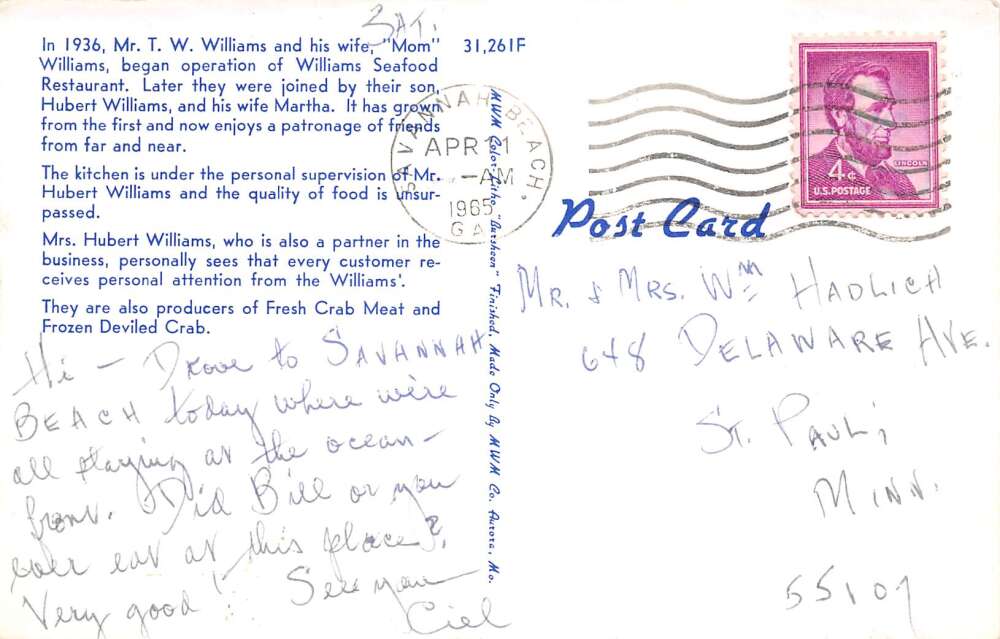 SAT.
In 1936, Mr. T. W. Williams and his wife, "Mom"
Williams, began operation of Williams Seafood
Restaurant. Later they were joined by their son,
Hubert Williams, and his wife Martha. It has grown
from the first and now enjoys a patronage of friends
from far and near.
The kitchen is under the personal supervision of Mr.
Hubert Williams and the quality of food is unsur-
passed.
Mrs. Hubert Williams, who is also a partner in the
business, personally sees that every customer re-
ceives personal attention from the Williams'.
They are also producers of Fresh Crab Meat and
Frozen Deviled Crab.
Hi – Drove to SAVANNAH
BEACH today where we're
all staying at the ocean-
front. Did Bill or you
ever eat at this place?
Very good! See you
Ciel
31,261F
MWM Color-Litho "Darsheen" Finished, Made Only By MWM Co. Aurora, Mo.
SAVANNAH BEACH,
APR 11
-AM
1965
GA
LINCOLN
4¢
U.S. POSTAGE
Post Card
MR. & MRS. Wm HADLICH
648 DELAWARE AVE.
ST. PAUL,
MINN.
55107